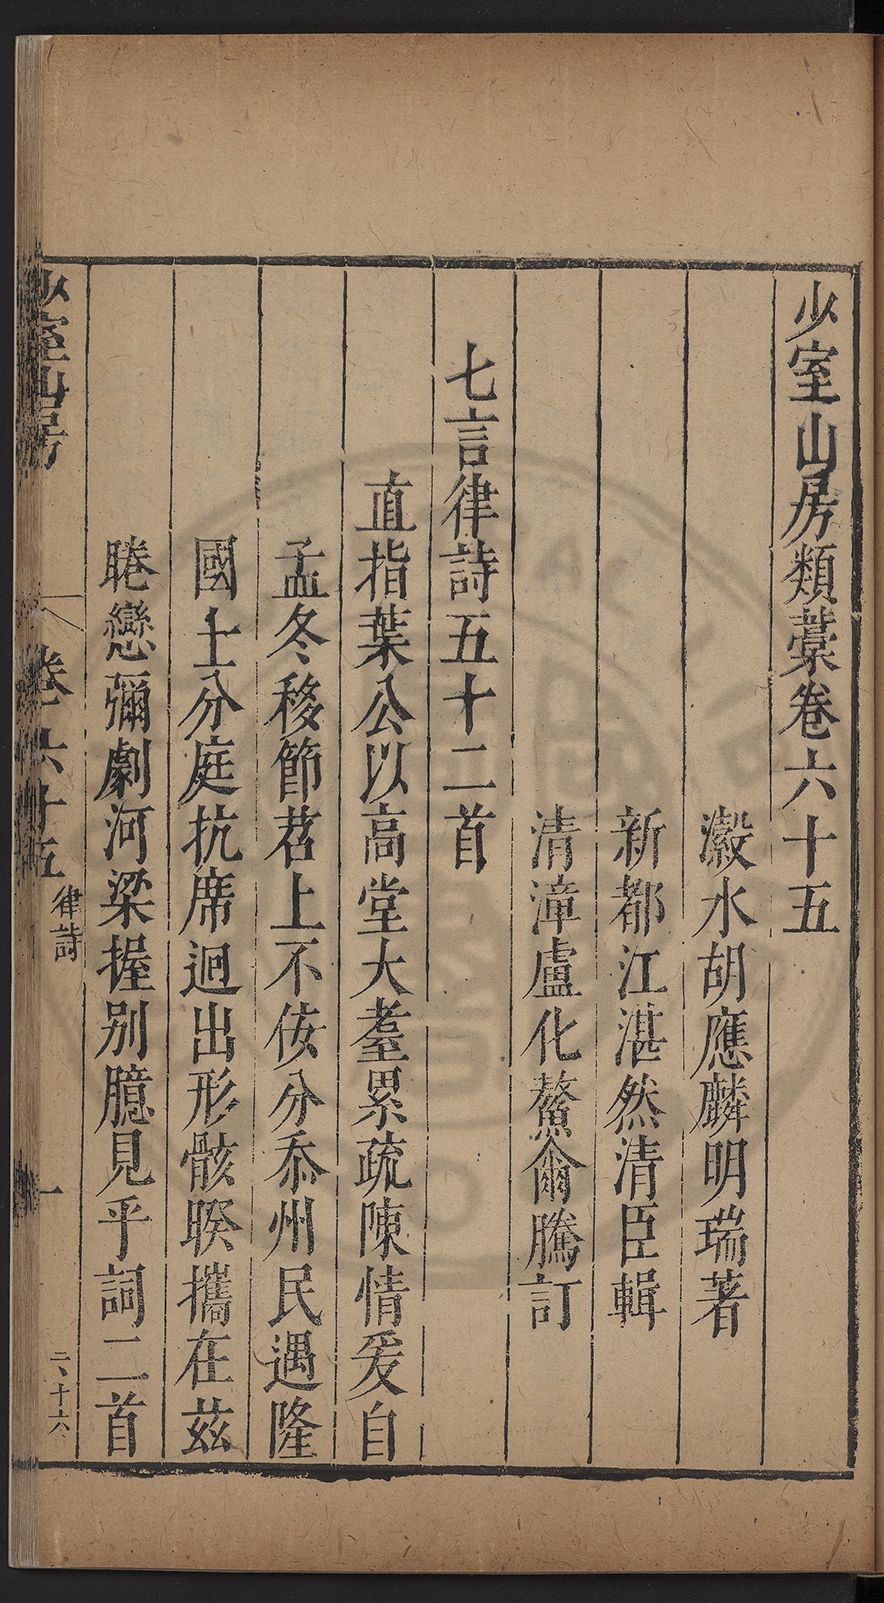 少室山房類藁卷六十五
瀫水胡應麟明瑞著
新都江湛然清臣輯
清漳盧化鰲尙騰訂
七言律詩五十二首
直指葉公以高堂大耋累疏陳情爰自
孟冬移節苕上不佞分忝州民遇隆
國士分庭抗席迥出形骸睽攜在茲
睠戀彌劇河梁握别臆見乎詞二首
少室山房
卷六十五
律詩
一
二、十六